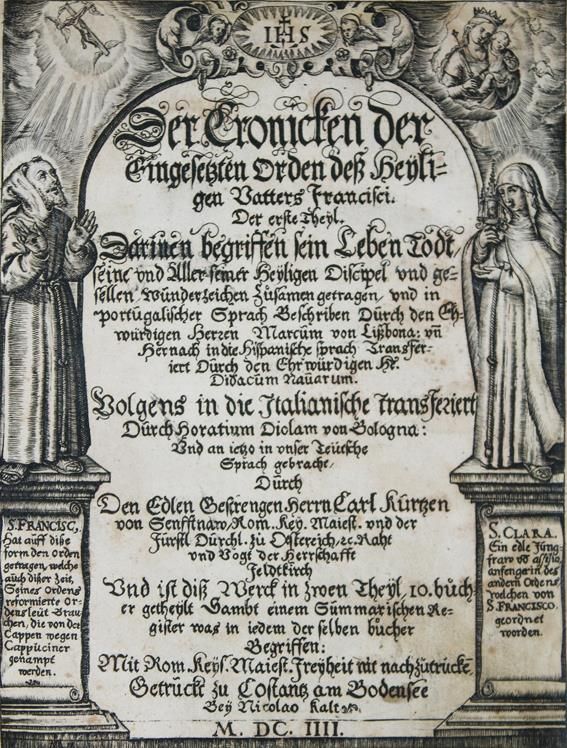 IHS
Der Cronicken der
Eingesetzten Orden deß Heyli-
gen Vatters Francisci.
Der erste Theyl.
Darinen begriffen sein Leben Todt,
seine vnd Aller seiner Heyligen Discipel vnd ge-
sellen Wunderzeichen Zusamen getragen, vnd in
portugalischer Sprach Beschriben Durch den Eh-
würdigen Herren Marcum von Lißbona: vñ
Hernach in die Hispanische sprach Transfer-
iert Durch den Ehrwürdigen Hr.
Didacum Nauarum.
Volgens in die Italianische transferiert
Durch Horatium Diolam von Bologna:
Vnd an ietzo in vnser Teütsche
Sprach gebracht,
Durch
Den Edlen Gestrengen Herrn Carl Kürtzen
von Senfftnaw, Rom. Key. Maiest. vnd der
Fürstl. Dürchl. zu Osterreich, ꝛc. Raht
vnd Vogt der Herrschafft
Feldtkirch
Vnd ist diß Werck in zwen Theyl, 10. büch-
er getheylt Sambt einem Summarischen Re-
gister was in iedem der selben bücher
Begriffen:
Mit Rom. Keys. Maiest. Freyheit nit nachzütrücke
Getrückt zu Costantz am Bodensee
Bey Nicolao Kalt
M. DC. IIII.
S. FRANCISC,
Hat auff dise
form den Orden
getragen, welche
auch diser Zeit,
Seines Ordens
reformierte or-
densleüt Brau-
chen, die von der
Cappen wegen
Cappuciner
genampt
werden.
S. CLARA.
Ein edle Jung-
fraw võ assisio,
anfengerin des
andern Ordens,
welchen von
S. FRANCISCO.
geordnet
worden.